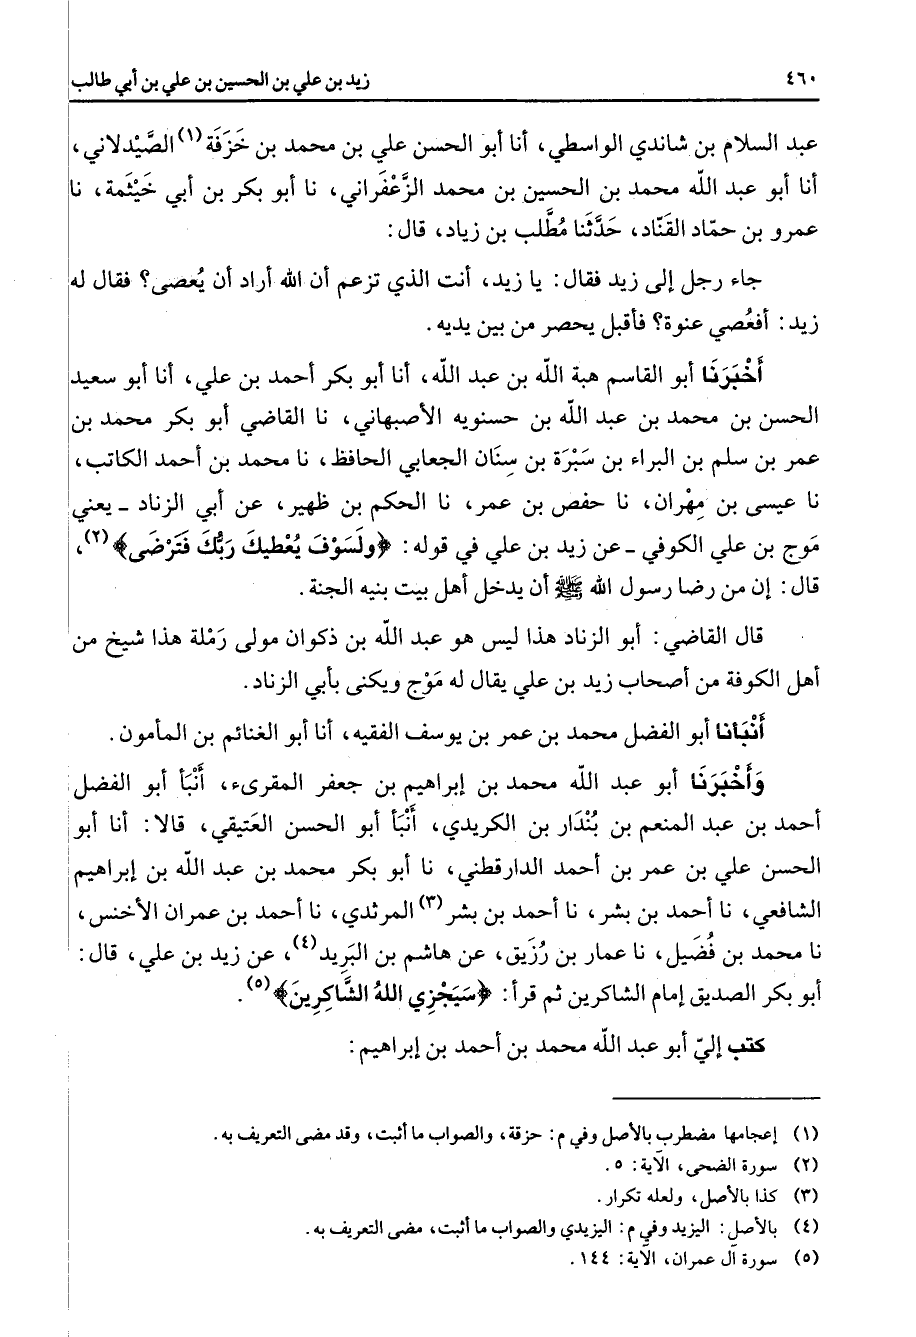 ٤٦٠ زيد بن علي بن الحسين بن علي بن أبي طالب
عبد السلام بن شاندي الواسطي، أنا أبو الحسن علي بن محمد بن خَزَفَة(١) الصَّيْدلاني،
أنا أبو عبد اللّه محمد بن الحسين بن محمد الزَّعْفَراني، نا أبو بكر بن أبي خَيْثَمة، نا
عمرو بن حمّاد القَنّاد، حَدَّثَنا مُطَّلب بن زياد، قال:
جاء رجل إلى زيد فقال: يا زيد، أنت الذي تزعم أن الله أراد أن يُعصى؟ فقال له
زيد: أفعُصي عنوة؟ فأقبل يحصر من بين يديه.
أَخْبَرَنَا أبو القاسم هبة اللّه بن عبد اللّه، أنا أبو بكر أحمد بن علي، أنا أبو سعيد
الحسن بن محمد بن عبد اللّه بن حسنويه الأصبهاني، نا القاضي أبو بكر محمد بن
عمر بن سلم بن البراء بن سَبْرَة بن سِنَان الجعابي الحافظ، نا محمد بن أحمد الكاتب،
نا عيسى بن مِهْران، نا حفص بن عمر، نا الحكم بن ظهير، عن أبي الزناد ـ يعني
مَوج بن علي الكوفي ـ عن زيد بن علي في قوله: ﴿ولَسوْفَ يُعْطيكَ رَبُّكَ فَتَرْضَى﴾(٢)،
قال: إن من رضا رسول الله ﷺ أن يدخل أهل بيت بنيه الجنة.
قال القاضي: أبو الزناد هذا ليس هو عبد اللّه بن ذكوان مولى رَمْلة هذا شيخ من
أهل الكوفة من أصحاب زيد بن علي يقال له مَوْج ويكنى بأبي الزناد.
أَنْبَانا أبو الفضل محمد بن عمر بن يوسف الفقيه، أنا أبو الغنائم بن المأمون.
وَأَخْبَرَنَا أبو عبد اللّه محمد بن إبراهيم بن جعفر المقرىء، أَنْبَأ أبو الفضل
أحمد بن عبد المنعم بن بُنْدَار بن الكريدي، أَنْبَأ أبو الحسن العَتيقي، قالا: أنا أبو
الحسن علي بن عمر بن أحمد الدارقطني، نا أبو بكر محمد بن عبد اللّه بن إبراهيم
الشافعي، نا أحمد بن بشر، نا أحمد بن بشر(٣) المرثدي، نا أحمد بن عمران الأخنس،
نا محمد بن فُضَيل، نا عمار بن رُزَيق، عن هاشم بن البَرِيد(٤)، عن زيد بن علي، قال:
أبو بكر الصديق إمام الشاكرين ثم قرأ: ﴿سَيَجْزِي اللهُ الشَّاكِرِينَ﴾(٥).
كتب إليّ أبو عبد اللّه محمد بن أحمد بن إبراهيم:
(١) إعجامها مضطرب بالأصل وفي م: حزقة، والصواب ما أثبت، وقد مضى التعريف به.
(٢) سورة الضحى، الآية: ٥.
(٣) كذا بالأصل، ولعله تكرار.
(٤) بالأصل: اليزيد وفي م: اليزيدي والصواب ما أثبت، مضى التعريف به.
(٥) سورة آل عمران، الآية: ١٤٤.